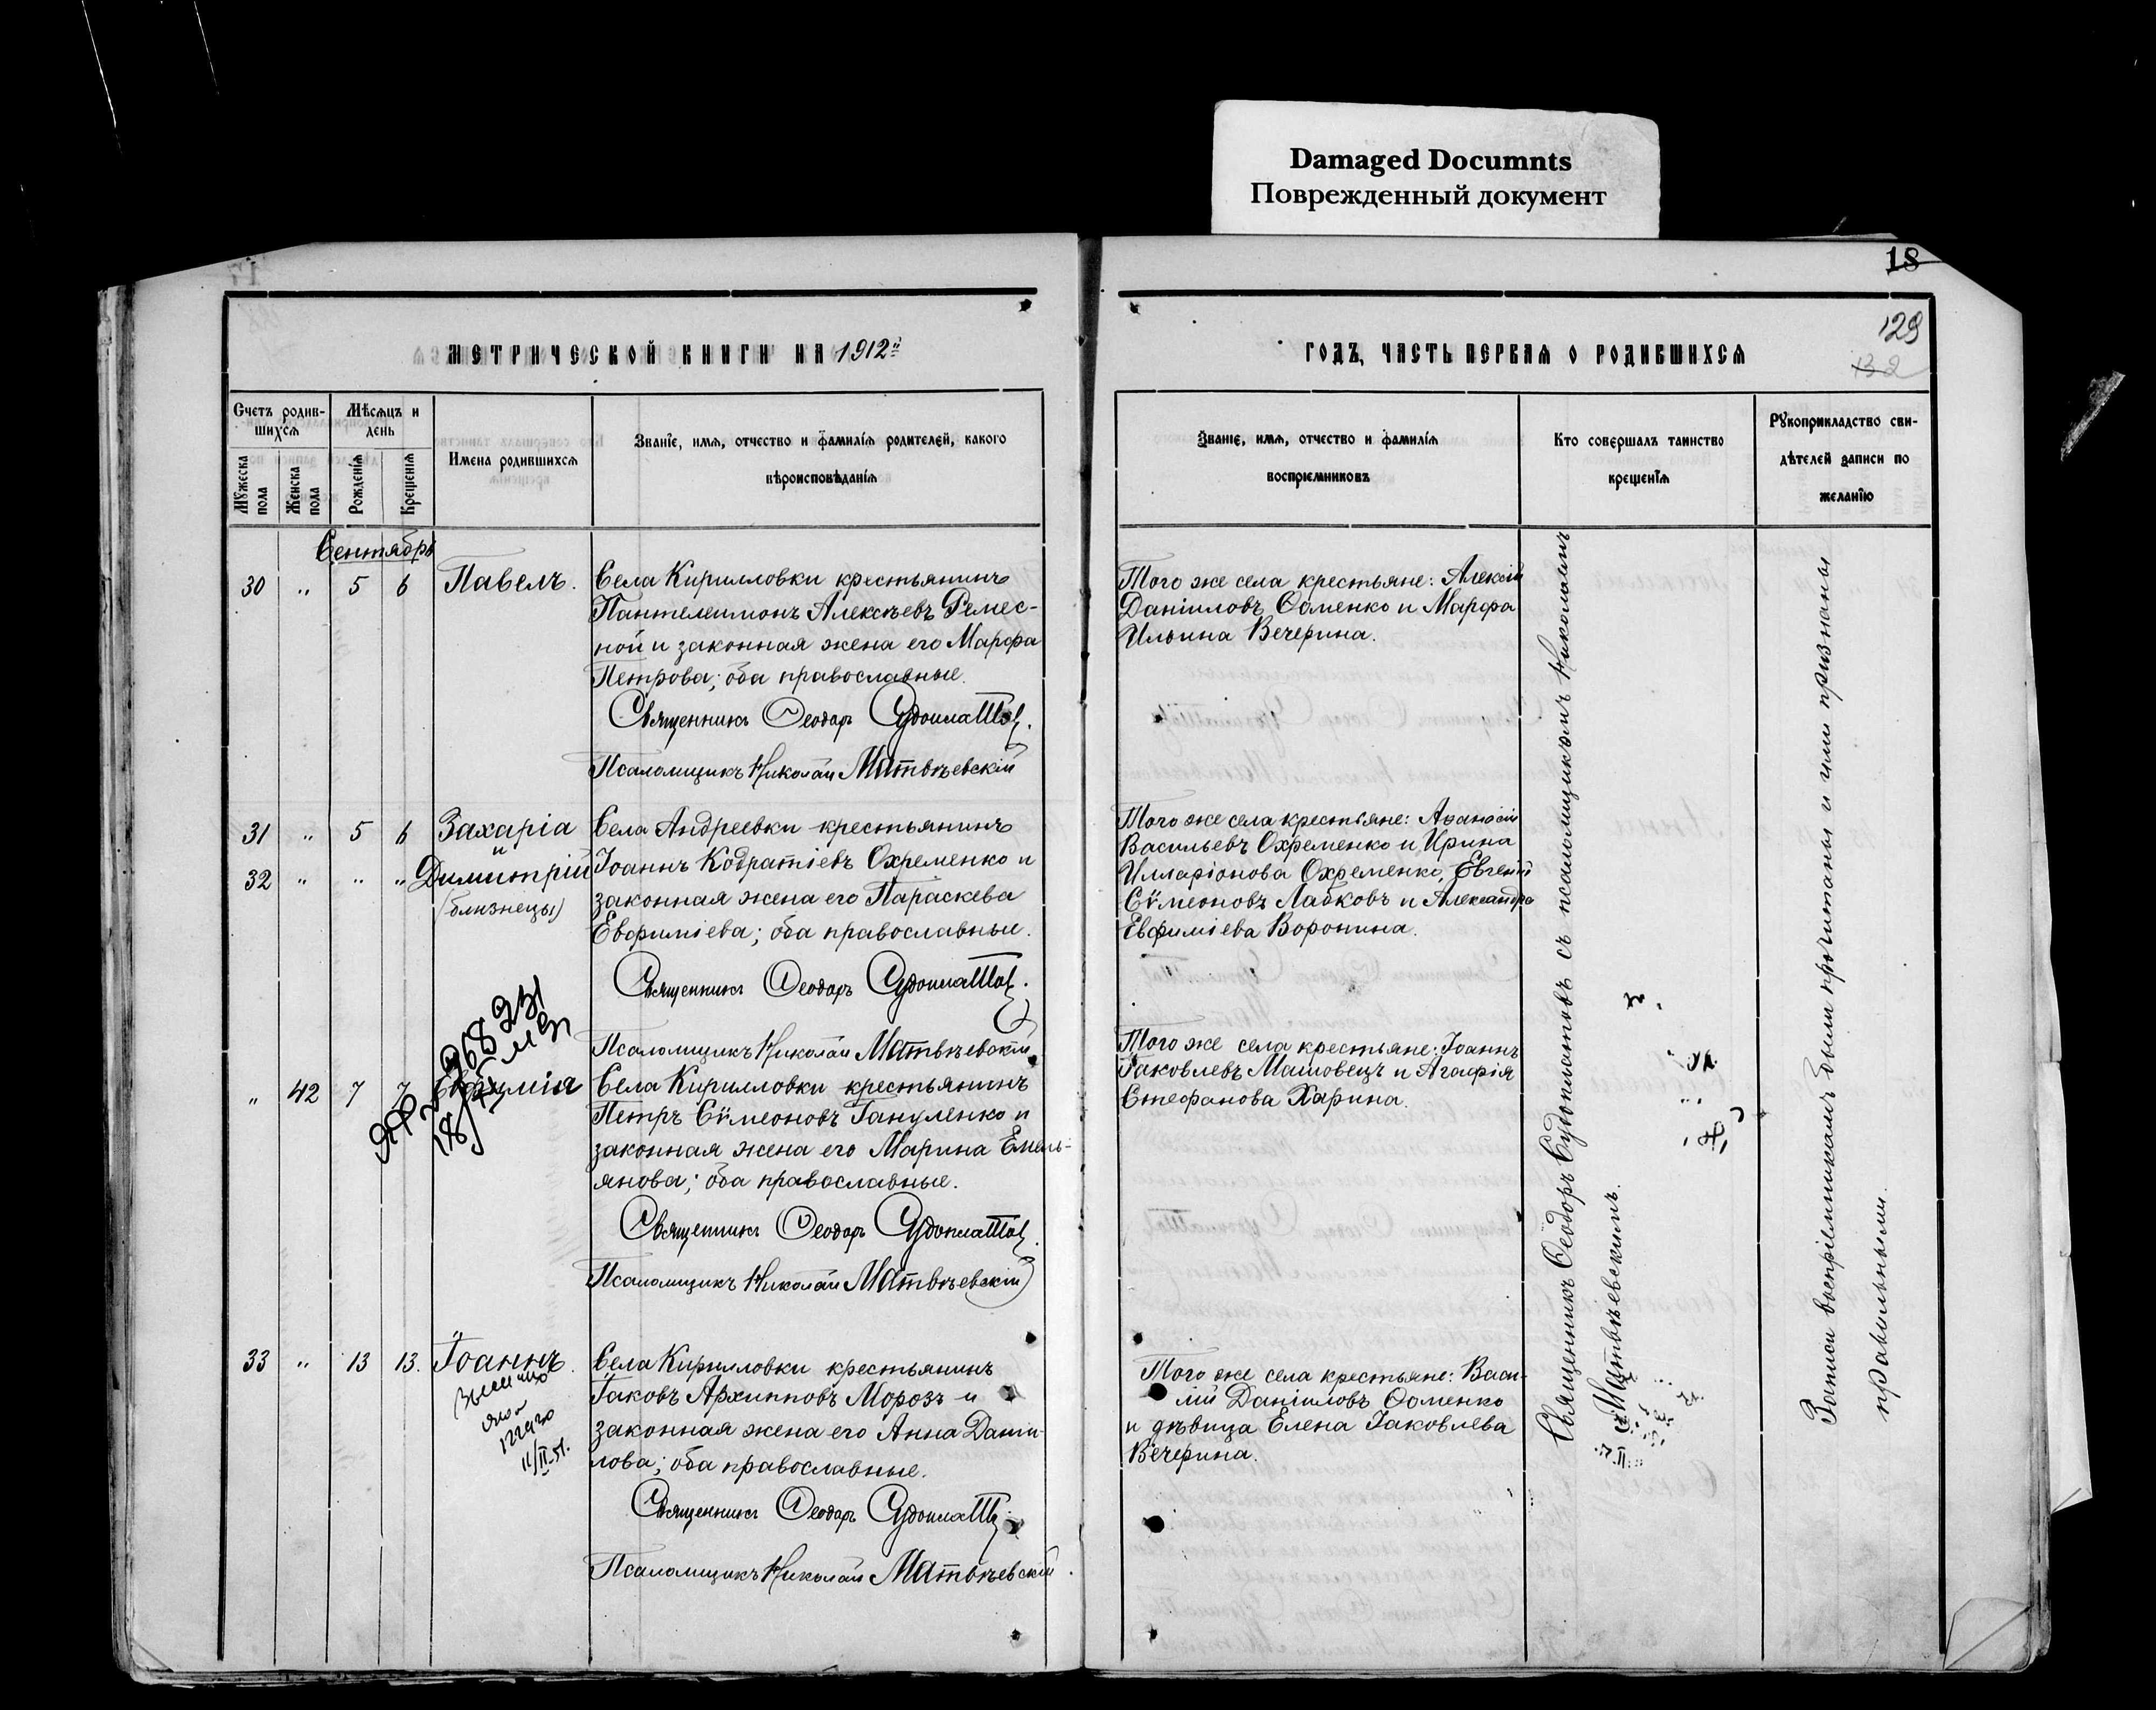 Damaged Documnts
Поврежденный документ
18
129
132
МЕТРИЧЕСКОЙ КНИГИ НА 1912й
ГОДЪ, ЧАСТЬ ПЕРВАЯ О РОДИВШИХСЯ
Счетъ родив-
шихся
Мужеска пола
Женска пола
Мѣсяцъ и
день
Рожденія
Крещенія
Имена родившихся
Званіе, имя, отчество и фамилія родителей, какого
вѣроисповѣданія
Званіе, имя, отчество и фамилія
воспріемниковъ
Кто совершалъ таинство
крещенія
Рукоприкладство сви-
дѣтелей записи по
желанію
Сентябрь
30 " 5 6 Павелъ.
Села Кирилловки крестьянинъ
Пантелеимонъ Алексѣевъ Ремес-
ной и законная жена его Марѳа
Петрова; оба православные.
Священникъ Ѳеодоръ Судоплатовъ.
Псаломщикъ Николай Матвѣевскій
Того же села крестьяне: Алексій
Даніиловъ Ѳоменко и Марѳа
Ильина Вечерина.
31 " 5 6 Захарія
и
32 " " " Димитрій
(близнецы)
Села Андреевки крестьянинъ
Іоаннъ Кодратіевъ Охременко и
законная жена его Параскева
Евѳиміева; оба православные.
Священникъ Ѳеодоръ Судоплатовъ.
Псаломщикъ Николай Матвѣевскій
Того же села крестьяне: Аѳанасій
Васильевъ Охременко и Ирина
Илларіонова Охременко, Евгеній
Сѵмеоновъ Лабковъ и Александра
Евфиміева Воронина.
" 42 7 7 Евфимія
Села Кирилловки крестьянинъ
Петръ Сѵмеоновъ Гануленко и
законная жена его Марина Емель-
янова; оба православные.
Священникъ Ѳеодоръ Судоплатовъ.
Псаломщикъ Николай Матвѣевскій
Того же села крестьяне: Іоаннъ
Іаковлевъ Машовецъ и Агаѳія
Стефанова Харина.
33 " 13 13. Іоаннъ.
11/II-51.
Села Кирилловки крестьянинъ
Іаковъ Архипповъ Морозъ и
законная жена его Анна Даніи-
лова; оба православные.
Священникъ Ѳеодоръ Судоплатовъ
Псаломщикъ Николай Матвѣевскій.
Того же села крестьяне: Васи-
лій Даніиловъ Ѳоменко
и дѣвица Елена Іаковлева
Вечерина.
Священникъ Ѳеодоръ Судоплатовъ съ псаломщикомъ Николаемъ
Матвѣевскимъ.
Записи воспріемникамъ были прочитаны и ими признаны
правильными.